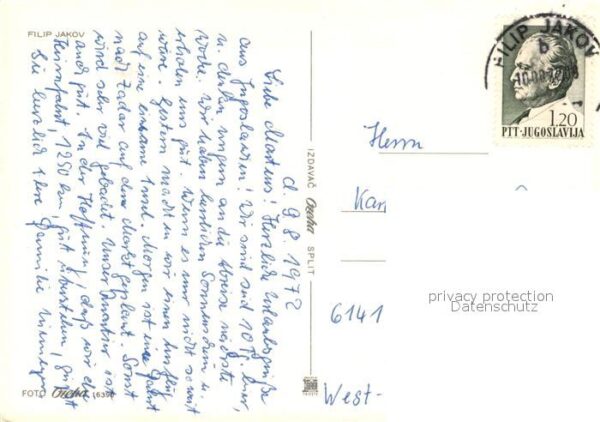 FILIP JAKOV
d 9.8.1972
Liebe Martens! Herzlich Urlaubsgrüße
aus Jugoslawien! Wir sind seit 10 Tg. hier,
u. denken ungern an die Abreise nächste
Woche. Wir haben herrlichen Sonnenschein u.
erholen uns gut. Wenn es nur nicht so weit
wäre. Gestern machten wir einen Ausflug
auf eine einsame Insel. Morgen ist eine Fahrt
nach Zadar auf den Markt geplant. Sonst
wird sehr viel gebadet. Unser Quartier ist
auch gut. In der Hoffnung, daß wir die
Heimfahrt, 1250 km, gut überstehen, grüßt
Sie herzlich Ihre Familie
FOTO
IZDAVAČ SPLIT
FILIP JAKOV
b
1.20
PTT-JUGOSLAVIJA
Herrn
Kar
6141
West-
privacy protection
Datenschutz